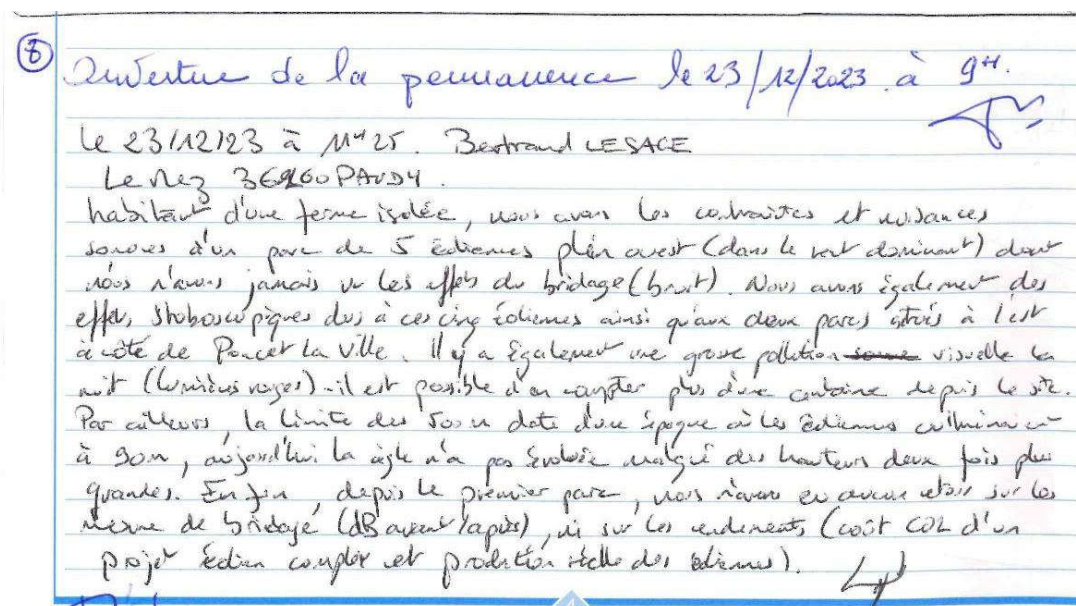 8
Ouverture de la permanence le 23/12/2023 à 9H.
le 23/12/23 à 11H25. Bertrand LESAGE
Le Nez 36260 PAUDY.
habitant d'une ferme isolée, nous avons les contraintes et nuisances
sonores d'un parc de 5 éoliennes plein ouest (dans le vent dominant) dont
nous n'avons jamais vu les effets du bridage (bruit). Nous avons également des
effets stroboscopiques dus à ces cinq éoliennes ainsi qu'aux deux parcs situés à l'est
à côté de Poncet La Ville. Il y a également une grosse pollution visuelle la
nuit (lumières rouges) - il est possible d'en compter plus d'une centaine depuis le site.
Par ailleurs, la limite des 500 m date d'une époque où les éoliennes culminaient
à 90m, aujourd'hui la règle n'a pas évoluée malgré des hauteurs deux fois plus
grandes. Enfin, depuis le premier parc, nous n'avons eu aucun retour sur les
mesure de bridage (dB avant/après), ni sur les rendements (coût CO2 d'un
projet éolien complet et production réelle des éoliennes).